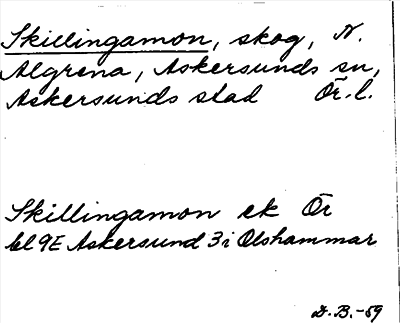 Skillingamon, skog, N.
Algrena, Askersunds sn,
Askersunds stad Ör. l.
Skillingamon ek Ör
bl 9E Askersund 3i Olshammar
D. B. -59